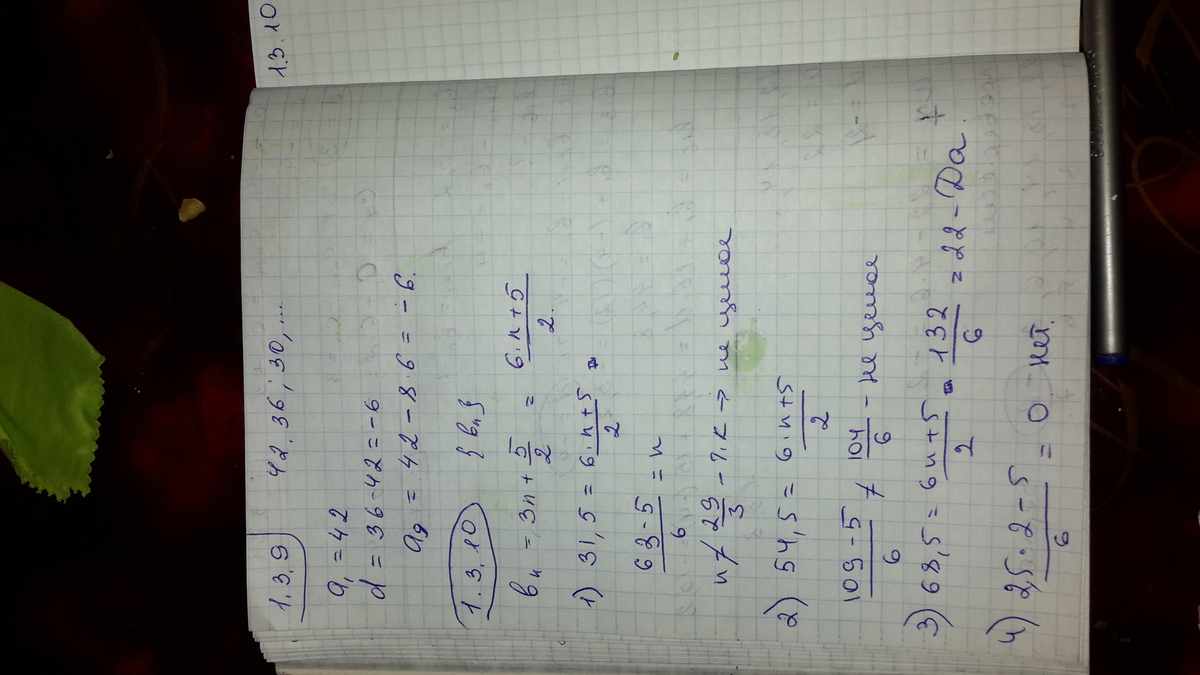 13.10
1.3.9 42. 36; 30, ...
a₁ = 42
d = 36-42 = -6
a₉ = 42 - 8·6 = -6.
1.3.10 {вₙ}
вₙ = 3n + 5/2 = (6·n+5)/2.
1) 31,5 = (6·n+5)/2
(63-5)/6 = n
n ≠ 29/3 - т.к → не целое
2) 54,5 = (6·n+5)/2
(109-5)/6 ≠ 104/6 - не целое
3) 68,5 = (6n+5)/2 = 132/6 = 22 - Да.
4) (2,5·2-5)/6 = 0 нет.